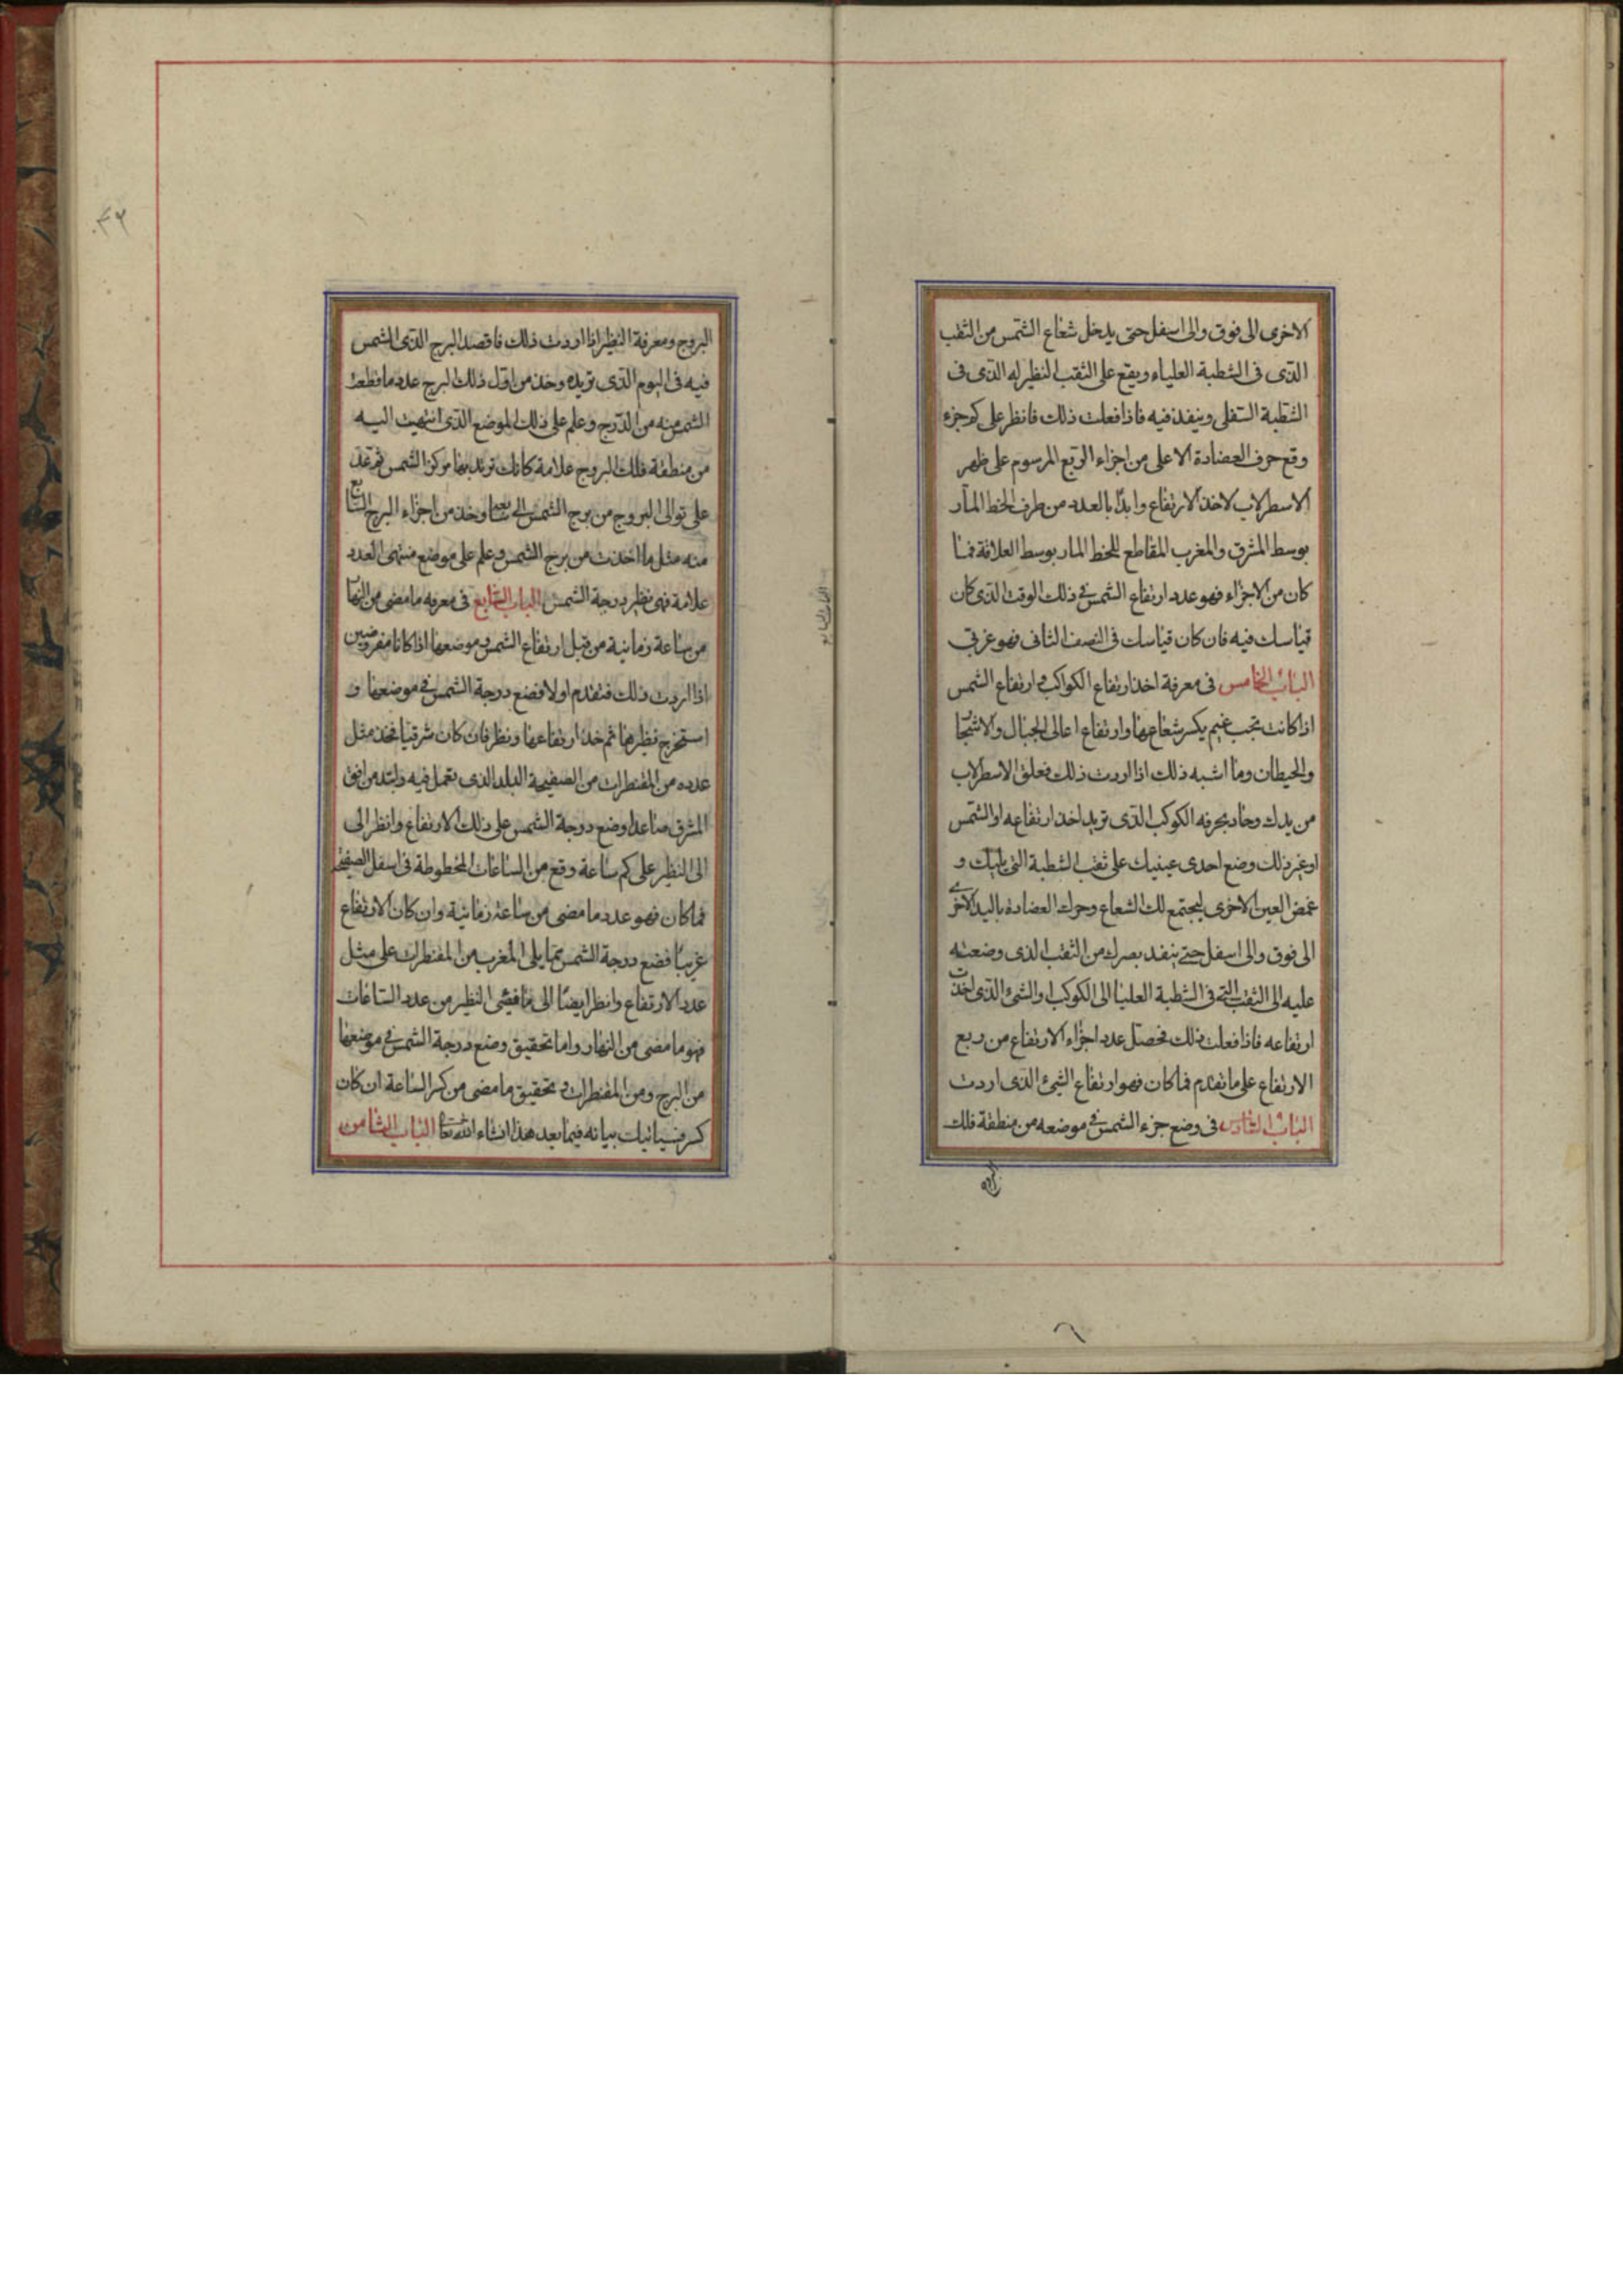 الاخرى الى فوق والى اسفل حتى يدخل شعاع الشمس من الثقب
الذى فى الشطبة العلياء ويقع على الثقب النظير له الذى فى
الشطبة السفلى وينفذ فيه فاذا فعلت ذلك فانظر على كم جزء
وقع حرف العضادة الاعلى من اجزاء الربع المرسوم على ظهر
الاسطرلاب لاخذ الارتفاع وابدا بالعدد من طرف الخط المار
بوسط المشرق والمغرب المقاطع للخط المار بوسط العلاقة فما
كان من الاجزاء فهو عدد ارتفاع الشمس فى ذلك الوقت الذى كان
قياسك فيه فان كان قياسك فى النصف الثانى فهو غربى
الباب الخامس فى معرفة اخذ ارتفاع الكواكب و ارتفاع الشمس
اذا كانت تحت غيم يكسر شعاعها وارتفاع اعالى الجبال والاشجار
والحيطان وما اشبه ذلك اذا اردت ذلك فعلق الاسطرلاب
من يدك وحاد بحرفه الكوكب الذى تريد اخذ ارتفاعه او الشمس
او غير ذلك وضع احدى عينيك على ثقب الشطبة التى يليك و
غمض العين الاخرى ليجتمع لك الشعاع وحرك العضادة باليد الاخرى
الى فوق والى اسفل حتى ينفد بصرك من الثقب الذى وضعته
عليه الى الثقب التى فى الشطبة العليا الى الكوكب او الشئ الذى اخذت
ارتفاعه فاذا فعلت ذلك فحصل عدد اجزاء الارتفاع من ربع
الارتفاع على ما تقدم فما كان فهو ارتفاع الشئ الذى اردت
الباب السادس فى وضع جزء الشمس فى موضعه من منطقة فلك
البروج
البروج ومعرفة النظير اذا اردت ذلك فاقصد البرج الذى الشمس
فيه فى اليوم الذى تريده وخذ من اول ذلك البرج عدد ما قطعت
الشمس منه من الدرج وعلم على ذلك الموضع الذى انتهيت اليه
من منطقة فلك البروج علامة كانك تريد بها مركز الشمس ثم عد
على توالى البروج من برج الشمس الى وخذ من اجزاء البرج السابع
منه مثل ما اخذت من برج الشمس وعلم على موضع منتهى العدد
علامة فهى نظير درجة الشمس الباب السابع فى معرفه ما مضى من النهار
من ساعة زمانية من قبل ارتفاع الشمس وموضعها اذا كانا مفروضين
اذا اردت ذلك فتقدم اولا فضع درجة الشمس فى موضعها و
استخرج نظيرها ثم خذ ارتفاعها ونظر فان كان شرقيا فخذ مثل
عدده من المقنطرات من الصفيحة البلد الذى تعمل فيه وابتد من افق
المشرق صاعدا وضع درجة الشمس على ذلك الارتفاع وانظر الى
الى النظير على كم ساعة وقع من الساعات المخطوطة فى اسفل الصفيحة
فما كان فهو عدد ما مضى من ساعة زمانية وان كان الارتفاع
غربيا فضع درجة الشمس مما يلى المغرب من المقنطرات على مثل
عدد الارتفاع وانظر ايضا الى ما النظير من عدد الساعات
فهو ما مضى من النهار واما تحقيق وضع درجة الشمس فى موضعها
من البرج ومن المقنطرات و تحقيق ما مضى من كسر الساعة ان كان
كسر فسياتيك بيانه فيما بعد هذا انشاء الله تعالى الباب الثامن